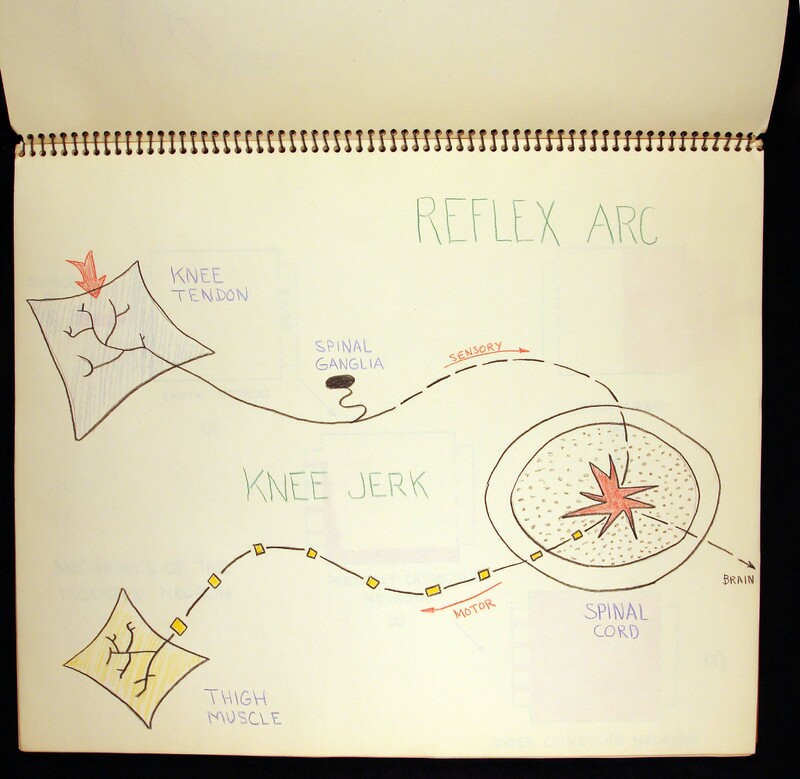 REFLEX ARC
KNEE
TENDON
SPINAL
GANGLIA
SENSORY
KNEE JERK
BRAIN
MOTOR
SPINAL
CORD
THIGH
MUSCLE